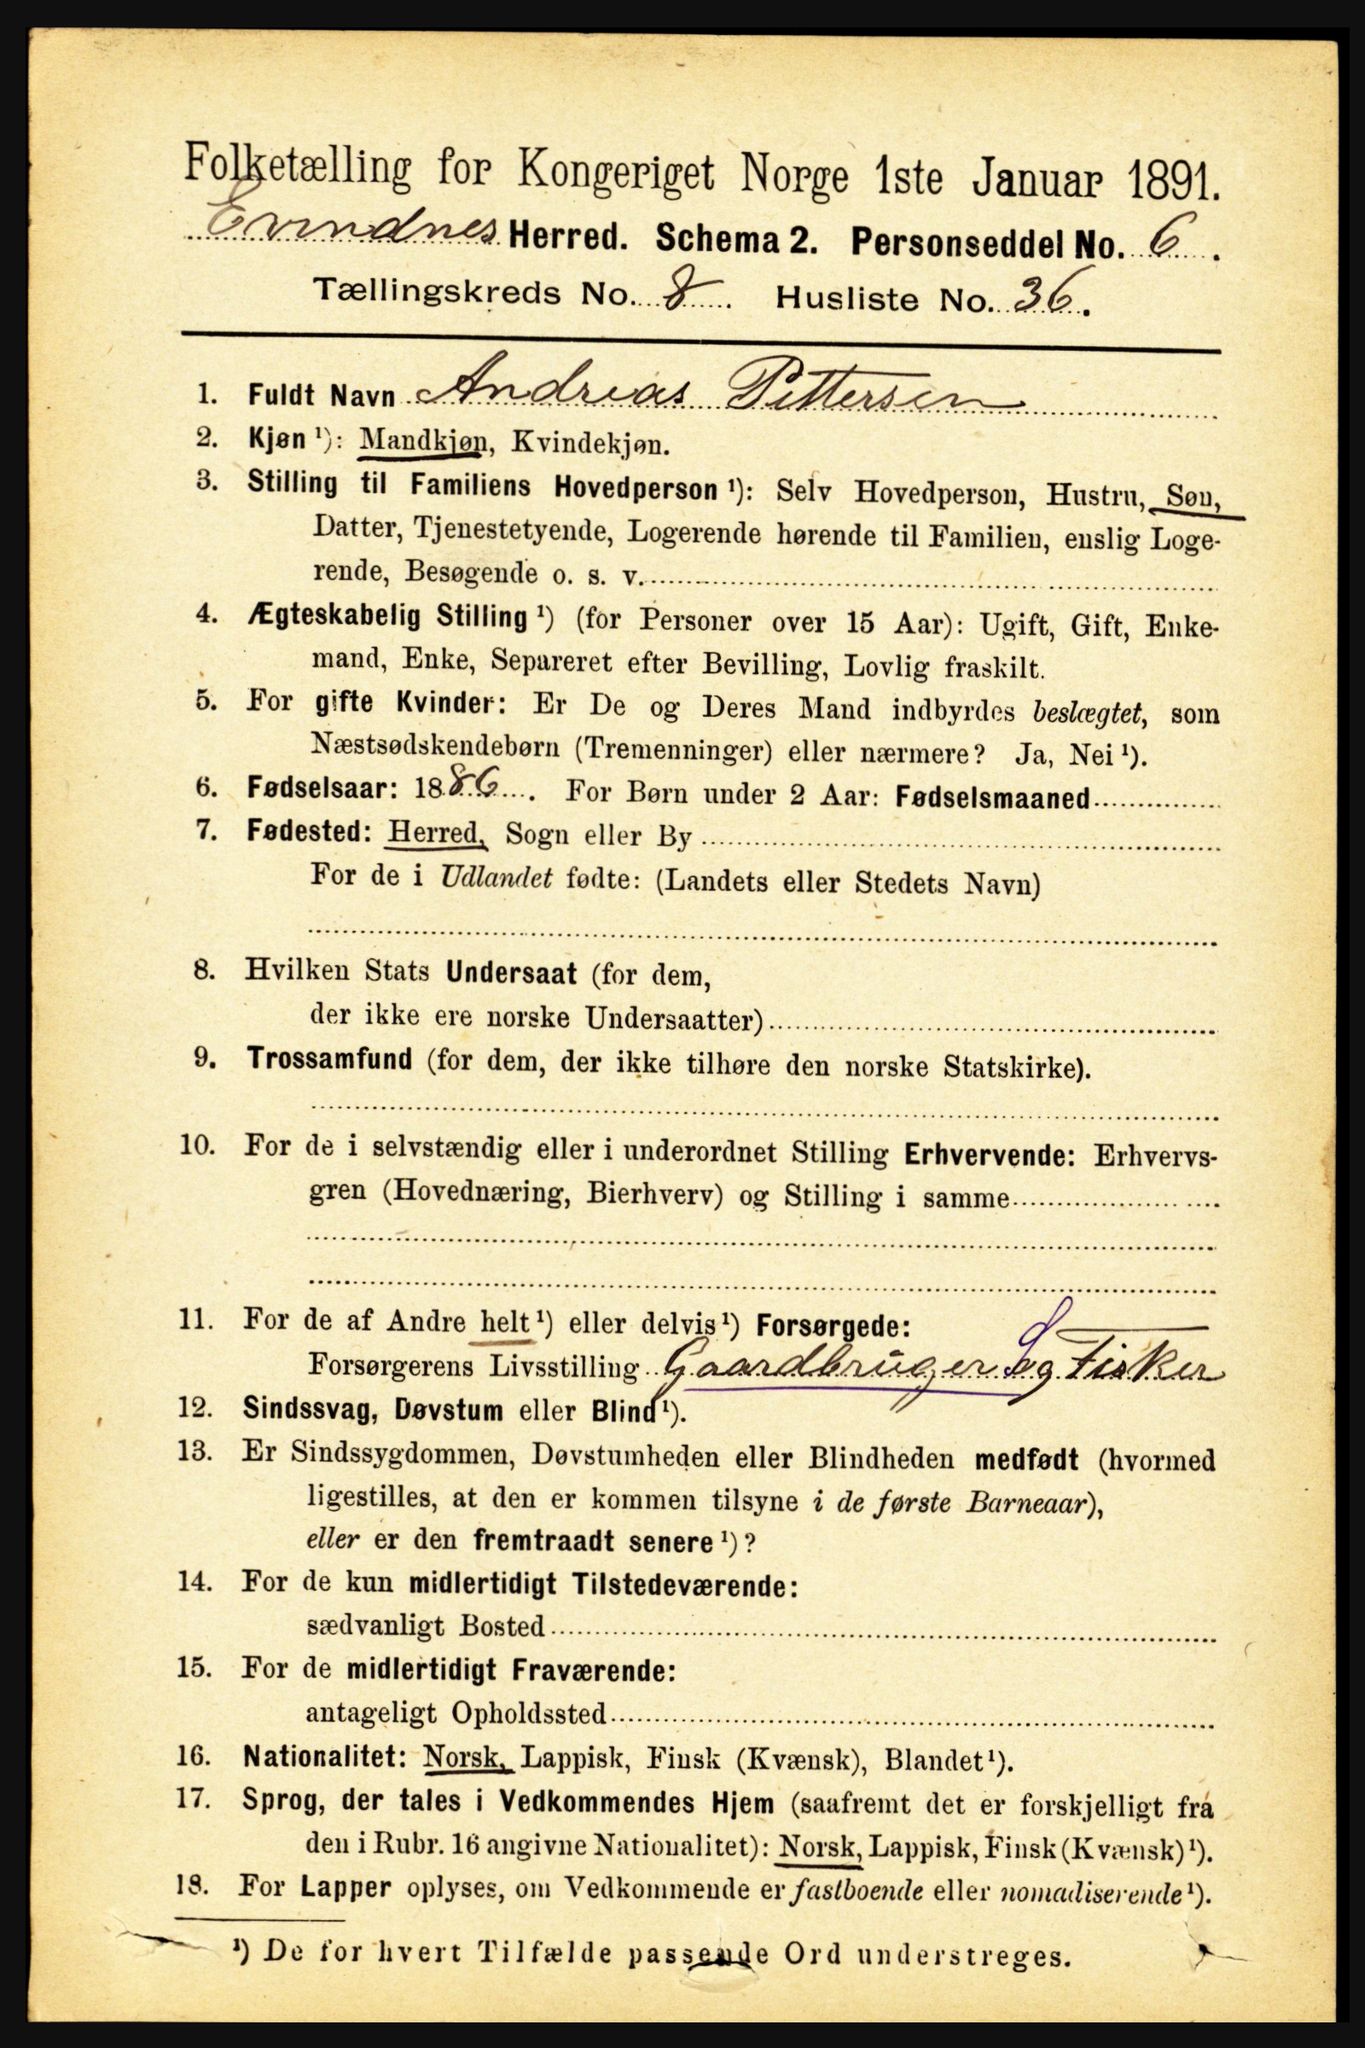 Folketælling for Kongeriget Norge 1ste Januar 1891.
Evindnes Herred. Schema 2. Personseddel No. 6.
Tællingskreds No. 8. Husliste No. 36.
1. Fuldt Navn Andreas Pettersen
2. Kjøn ¹): Mandkjøn, Kvindekjøn.
3. Stilling til Familiens Hovedperson ¹): Selv Hovedperson, Hustru, Søn,
Datter, Tjenestetyende, Logerende hørende til Familien, enslig Loge-
rende, Besøgende o. s. v.
4. Ægteskabelig Stilling ¹) (for Personer over 15 Aar): Ugift, Gift, Enke-
mand, Enke, Separeret efter Bevilling, Lovlig fraskilt.
5. For gifte Kvinder: Er De og Deres Mand indbyrdes beslægtet, som
Næstsødskendebørn (Tremenninger) eller nærmere? Ja, Nei ¹).
6. Fødselsaar: 1886. For Børn under 2 Aar: Fødselsmaaned
7. Fødested: Herred, Sogn eller By
For de i Udlandet fødte: (Landets eller Stedets Navn)
8. Hvilken Stats Undersaat (for dem,
der ikke ere norske Undersaatter)
9. Trossamfund (for dem, der ikke tilhøre den norske Statskirke).
10. For de i selvstændig eller i underordnet Stilling Erhvervende: Erhvervs-
gren (Hovednæring, Bierhverv) og Stilling i samme
11. For de af Andre helt ¹) eller delvis ¹) Forsørgede:
Forsørgerens Livsstilling Gaardbruger og Fisker
12. Sindssvag, Døvstum eller Blind ¹).
13. Er Sindssygdommen, Døvstumheden eller Blindheden medfødt (hvormed
ligestilles, at den er kommen tilsyne i de første Barneaar),
eller er den fremtraadt senere ¹)?
14. For de kun midlertidigt Tilstedeværende:
sædvanligt Bosted
15. For de midlertidigt Fraværende:
antageligt Opholdssted
16. Nationalitet: Norsk, Lappisk, Finsk (Kvænsk), Blandet ¹).
17. Sprog, der tales i Vedkommendes Hjem (saafremt det er forskjelligt fra
den i Rubr. 16 angivne Nationalitet): Norsk, Lappisk, Finsk (Kvænsk) ¹).
18. For Lapper oplyses, om Vedkommende er fastboende eller nomadiserende ¹).
¹) De for hvert Tilfælde passende Ord understreges.